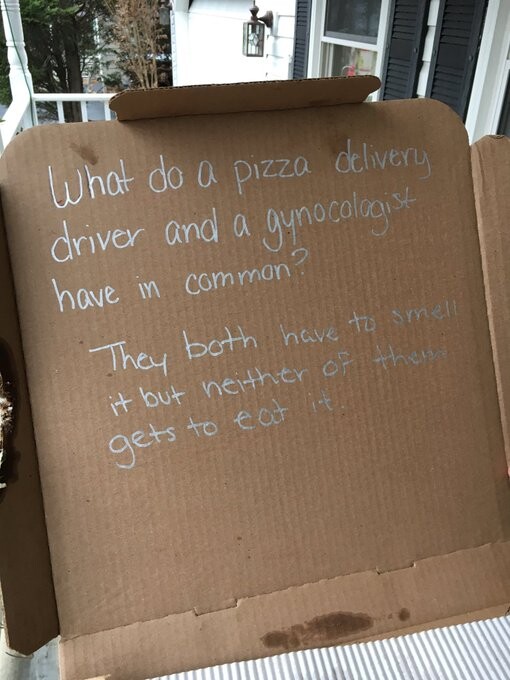 What do a pizza delivery
driver and a gynocologist
have in common?
They both have to smell
it but neither of them
gets to eat it.